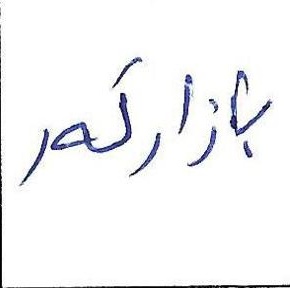 بازارگەر